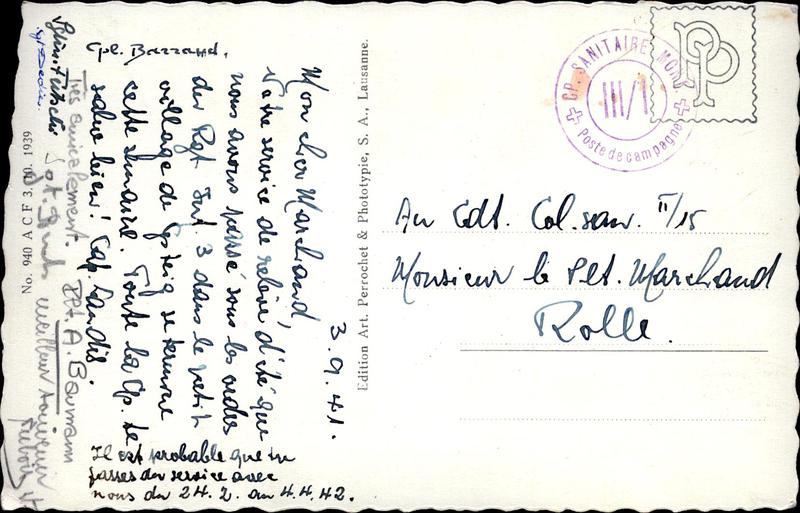 3.9.41.
Mon cher Marchand,
Notre service de relève d'été que
nous avons passé sous les ordres
du Rgt Inf. 3 dans le petit
village de Gsteig se termine
cette semaine. Toute la Cp. te
salue bien! Cap.
Il est probable que tu
fasses du service avec
nous du 24.2. au 4.4.42.
Cpl. Barraud.
Très amicalement. A. Baumann
meilleur souvenir
Au Cdt. Col. san. II/15
Monsieur le Plt. Marchand
Rolle.
CP. SANITAIRE MONT.
III/1
Poste de campagne
PP
Edition Art. Perrochet & Phototypie, S. A., Lausanne.
No. 940 A C F 3. III. 1939